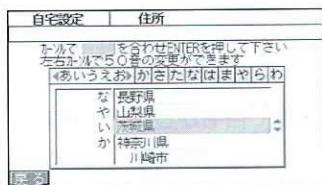 自宅設定 住所
ｶｰｿﾙで を合わせENTERを押して下さい
左右ｶｰｿﾙで５０音の変更ができます
«あいうえお» か さ た な は ま や ら わ
な 長野県
や 山梨県
い 茨城県
か 神奈川県
川崎市
戻る